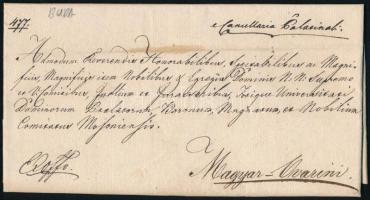 477.
BUDA
e Cancellaria Palatinali.
Admodum Reverendis Honorabilibus, Spectabilibus ac Magni-
ficis, Magnificis item Nobilibus & Egregiis Dominis N. N. Supremo
et Vicecomitibus, Judlium et Jurassoribus, Totique Universitati
Dominorum Praelatorum, Baronum, Magnatum, et Nobilium
Comitatus Mosoniensis.
Magyar-Ovarini.